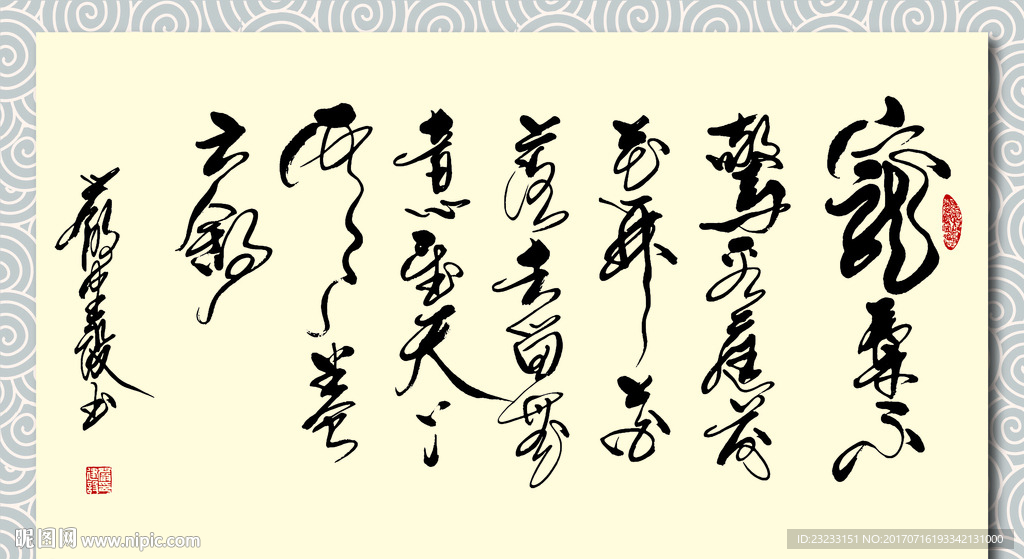 寵辱不
驚看庭前
花開花
落去留無
意望天上
雲卷
云舒
书
昵图网 www.nipic.com
ID:23233151 NO:20170716193342131000